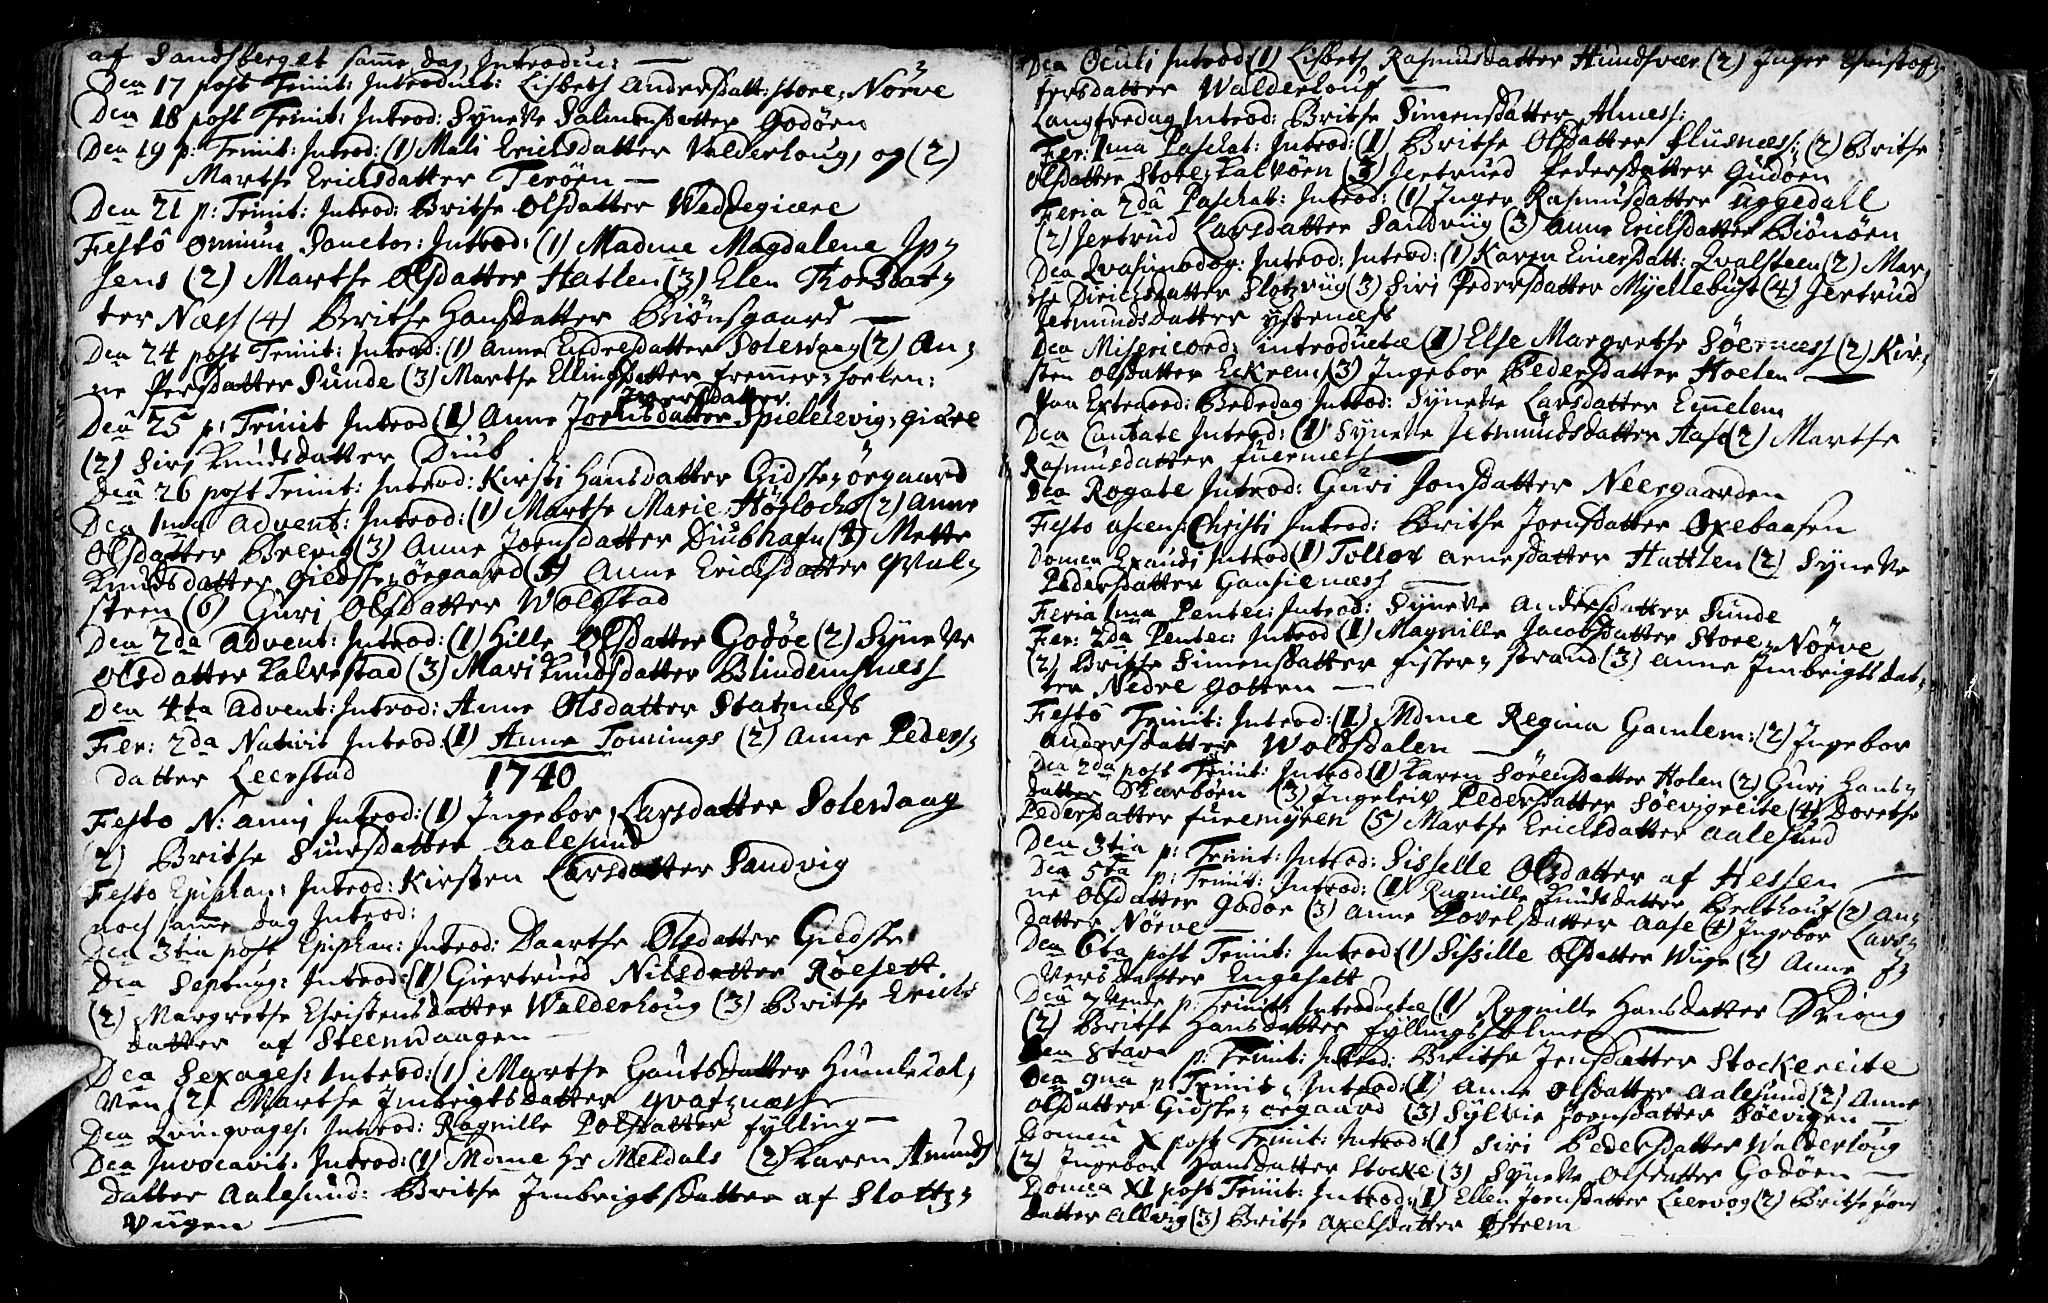 af Sandsberget samme dag, Introdun:
Dca 17 post Trinit: Introduct: Lisbeth Andersdatt: Store-Nörve
Dca 18 post Trinit: Introd: Synneve Salmonsdatter Godöen
Dca 19 p: Trinit: Introd: (1) Mali Erichsdatter Valderhoug, og (2)
Marthe Erichsdatter Teröen
Dca 21 p: Trinit: Introd: Brithe Olsdatter Weddegiære
Festô omnium Sanctor: Introd: (1) Madme Magdalene Jp-
sens (2) Marthe Olsdatter Hatlen (3) Elen Thorsdat-
ter Næss (4) Brithe Hansdatter Biönsgaard
Dca 24 post Trinit: Introd: (1) Anne Endresdatter Solevaag (2) An-
ne Persdatter Sunde (3) Marthe Ellingsdatter fremmer-hoelen:
Iversdatter
Dca 25 p: Trinit Introd (1) Anne Joensdatter Spielevig, giære
(2) Siri Knudsdatter Diub
Dca 26 post Trinit: Introd: Kirsti Hansdatter Gidske-öegaard
Dca 1ma Advent: Introd: (1) Marthe Marie Höjlochs (2) Anne
Olsdatter Brevig (3) Anne Joensdatter Diubhafn (4) Mette
Knudsdatter Giedske-öegaard (5) Anne Erichsdatter Qval-
steen (6) Guri Olsdatter Woldstad
Dca 2da Advent: Introd: (1) Hille Olsdatter Godöe (2) Syneve
Olsdatter Kalvestad (3) Mari Knudsdatter Blindemsnæss
Dca 4ta Advent: Introd: Anne Olsdatter Statznæss
Fer: 2da Nativit Introd: (1) Anne Tonnings (2) Anne Peders-
datter Leerstad
1740
Festo N: anni Introd: (1) Ingebor Larsdatter Solevaag
(2) Brithe Siursdatter Aalesund
Festo Epiphan: Introd: Kirsten Larsdatter Sandvig
noch samme dag Introd:
Dca 3tia post Epiphan: Introd: Baarthe Olsdatter Giedske
Dca Septuag: Introd: (1) Giertrued Nilsdatter Röesett
(2) Margrethe Christensdatter Walderhoug (3) Brithe Erichs
datter af Steenvaagen
Dca Sexages: Introd: (1) Marthe Gautsdatter Humlecol-
ven (2) Marthe Imbrigtsdatter Qvaznæss
Dca Qvinqvages: Introd: Ragnille Polsdatter fylling
Dca Invocavit: Introd: (1) Mdme Hr Meldals (2) Karen Amunds
datter Aalesund: Brithe Imbrigtsdatter af Slotts-
viigen
Dca Oculi Introd (1) Lisbeth Rasmusdatter Hundsvær (2) Inger Christof-
fersdatter Walderhouf
Langfredag Introd: Brithe Simensdatter Alness:
Fer: 1ma Paschat: Introd: (1) Brithe Olsdatter fluenæss: (2) Brithe
Olsdatter Store-Kalvöen (3) Jertrued Pedersdatter Gudöen
Feria 2dâ Paschat: Introd: (1) Inger Rasmusdatter Uggedall
(2) Jertrud Larsdatter Sandviig (3) Anne Erichsdatter Biönöen
Dca Qvasimodog: Introd: Introd: (1) Karen Einersdatt: Qvalsteen (2) Mar-
the Dirichsdatter Slotzviig (3) Siri Pedersdatter Myellebust (4) Jertrud
Jetmundsdatter Ystenæss
Dca Misericord: introductæ (1) Else Margrethe Söernæss (2) Kir-
sten Olsdatter Eckrem (3) Ingebor Pedersdatter Hoelen
Paa Extraord: Bededag Introd: Syneve Larsdatter Emmelem
Dca Cantate Introd: (1) Syneve Jetmundsdatter Aase (2) Marthe
Rasmusdatter fuernæss
Dca Rogate Introd: Guri Jonsdatter Neergaarden
Festo ascens: Christi Introd: Brithe Joensdatter Oxebaasen
Domca Exaudi Introd (1) Tollov Arnesdatter Hattlen (2) Syneve
Pedersdatter Gausienæss
Feria 1ma Pentec: Introd: Syneve Andersdatter Sunde
Fer: 2da Pentec: Introd (1) Magnille Jacobsdatter Store-Nörve
(2) Brithe Simensdatter fister-strand (3) Anne Imbrigtsdat-
ter Nedre Gotten
Festô Trinit: Introd: (1) Mdme Regina Gamlem: (2) Ingebor
Andersdatter Woldsdalen
Dca 2da post Trinit: Introd (1) Karen Sörensdatter Holen (2) Guri Hans-
datter Skarböen (3) Ingeleiv Pedersdatter Söevigreite (4) Dorethe
Pedersdatter furemyren (5) Marthe Erichsdatter Aalesund
Dca 3tia p: Trinit: Introd: Sisselle Olsdatter af Hessen
Dca 5ta p: Trinit: Introd: (1) Ragnille Knudsdatter Bredthouf (2) An-
ne Olsdatter Godöe (3) Anne Povelsdatter Aase (4) Ingebor Lars-
datter Nörve
Dca 6ta post Trinit: Introd: (1) Sissille Olsdatter Wiige (2) Anne J-
versdatter Engesett
Dca 7vende p: Trinit: Introductæ (1) Ragnille Hansdatter Skiong
(2) Brithe Hansdatter fyllingsholmen
Dca 8tava p: Trinit: Introd: Brithe Jensdatter Stockereite
Dca 9na p: Trinit: Introd: (1) Anne Olsdatter Aalesund (2) Anne
Olsdatter Gidske-öegaard (3) Sylvie Joensdatter Söevigen
Domca X post Trinit: Introd: (1) Siri Pedersdatter Walderhoug
(2) Ingebor Hansdatter Stocke (3) Syneve Olsdatter Godöen
Domca XI post Trinit: Introd: (1) Ellen Joensdatter Leervog (2) Brithe Joens
datter Allvig (3) Brithe Axelsdatter Östrem